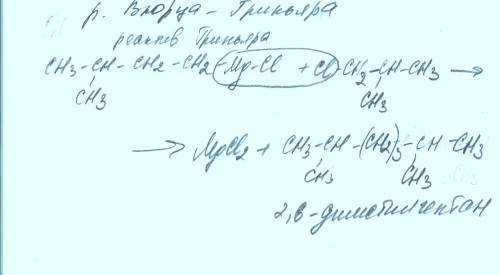 р. Вюрца - Гриньяра
реактив Гриньяра
CH3-CH-CH2-CH2-Mg-Cl + Cl-CH2-CH-CH3 →
CH3 CH3
→ MgCl2 + CH3-CH-(CH2)3-CH-CH3
CH3 CH3
2,6-диметилгептан